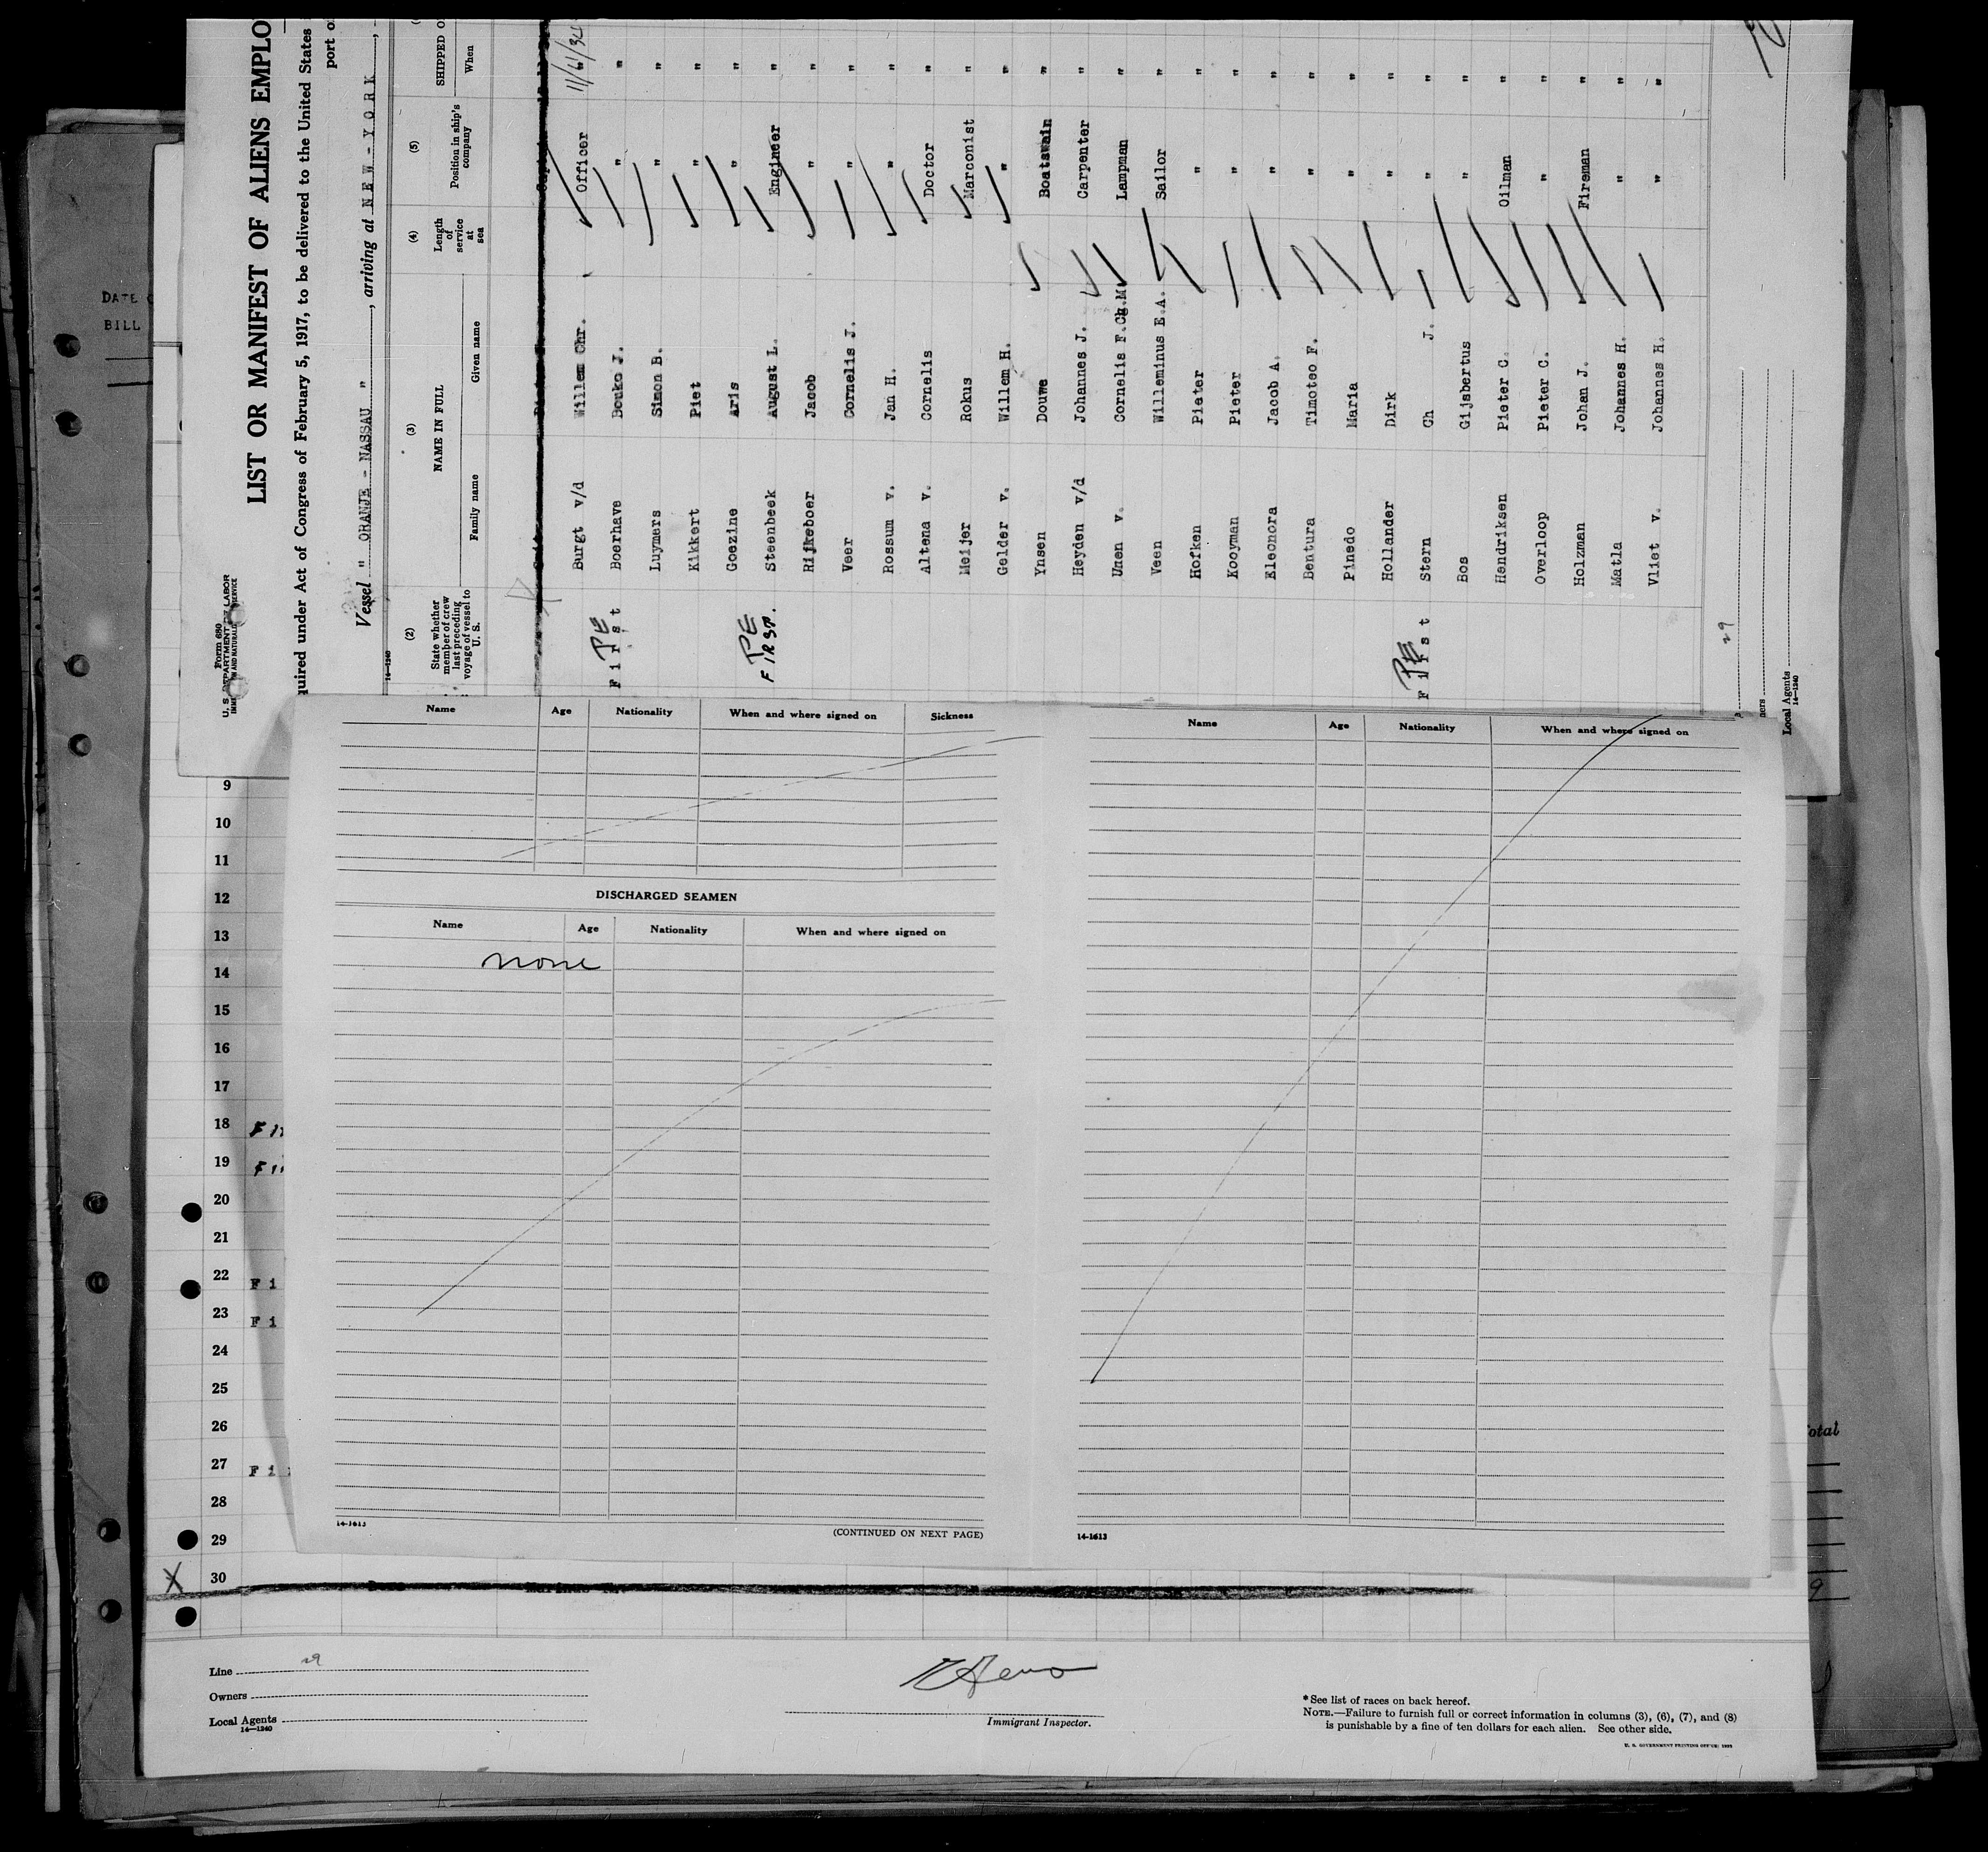 LIST OR MANIFEST OF ALIENS EMPLO
quired under Act of Congress of February 5, 1917, to be delivered to the United States
port o
Form 680
U. S. DEPARTMENT OF LABOR
Vessel " ORANJE - NASSAU ", arriving at NEW - YORK,
14—1240
(2) (3) (4) (5)
State whether member of crew last preceding voyage of vessel to U. S.
NAME IN FULL
Family name Given name
Length of service at sea
Position in ship's company
SHIPPED O
When
Burgt v/d Willem Chr. Officer 11/6/34 "
First PE Boerhave Bouko J. " "
Luymers Simon B. " "
Kikkert Piet " "
Goezine Aris " "
FIRST. PE Steenbeek August L. Engineer "
Rijkeboer Jacob " "
Veer Cornelis J. " "
Rossum v. Jan H. " "
Altena v. Cornelis Doctor "
Meijer Rokus Marconist "
Gelder v. Willem H. " "
Ynsen Douwe Boatswain "
Heyden v/d Johannes J. Carpenter "
Unen v. Cornelis F.Ch.M. Lampman "
Veen Willeminus E.A. Sailor "
Hofken Pieter " "
Kooyman Pieter " "
Eleonora Jacob A. " "
Bentura Timoteo F. " "
Pinedo Maria " "
Hollander Dirk " "
First PE Stern Ch J. " "
Bos Gijsbertus " "
Hendriksen Pieter C. Oilman "
Overloop Pieter C. " "
Holzman Johan J. Fireman "
Matla Johannes H. " "
Vliet v. Johannes H. " "
29
ners
Local Agents
14—1240
DATE
BILL
Name Age Nationality When and where signed on Sickness
DISCHARGED SEAMEN
Name Age Nationality When and where signed on
none
14-1613
(CONTINUED ON NEXT PAGE)
Name Age Nationality When and where signed on
14-1613
9
10
11
12
13
14
15
16
17
18 Fi
19 Fi
20
21
22 Fi
23 Fi
24
25
26
27 Fi
28
29
X 30
otal
9
Line 29
Owners
Local Agents
14—1240
Immigrant Inspector.
* See list of races on back hereof.
NOTE.—Failure to furnish full or correct information in columns (3), (6), (7), and (8)
is punishable by a fine of ten dollars for each alien. See other side.